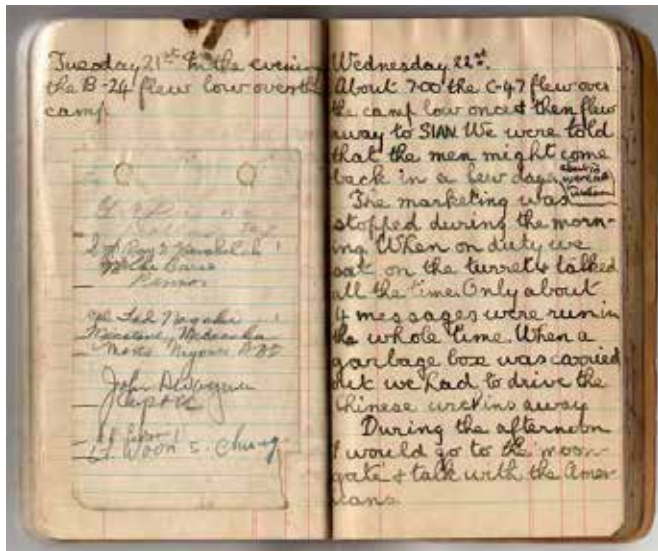 Tuesday 21st In the evening
the B-24 flew low over the
camp
Sgt Ray N.
Wilkes Barre
Penna.
Cpl Tad Nagaki
Nebraska
John
Lt. Woon S. Chung
Wednesday 22st.
About 700 the C-47 flew over
the camp low once & then flew
away to SIAN. We were told
that the men might come
back in a few days
The marketing was
stopped during the morn-
ing. When on duty we
sat on the turret & talked
all the time. Only about
4 messages were run in
the whole time. When a
garbage box was carried
out we had to drive the
Chinese urchins away
During the afternoon
I would go to the moon-
gate & talk with the Amer-
icans.